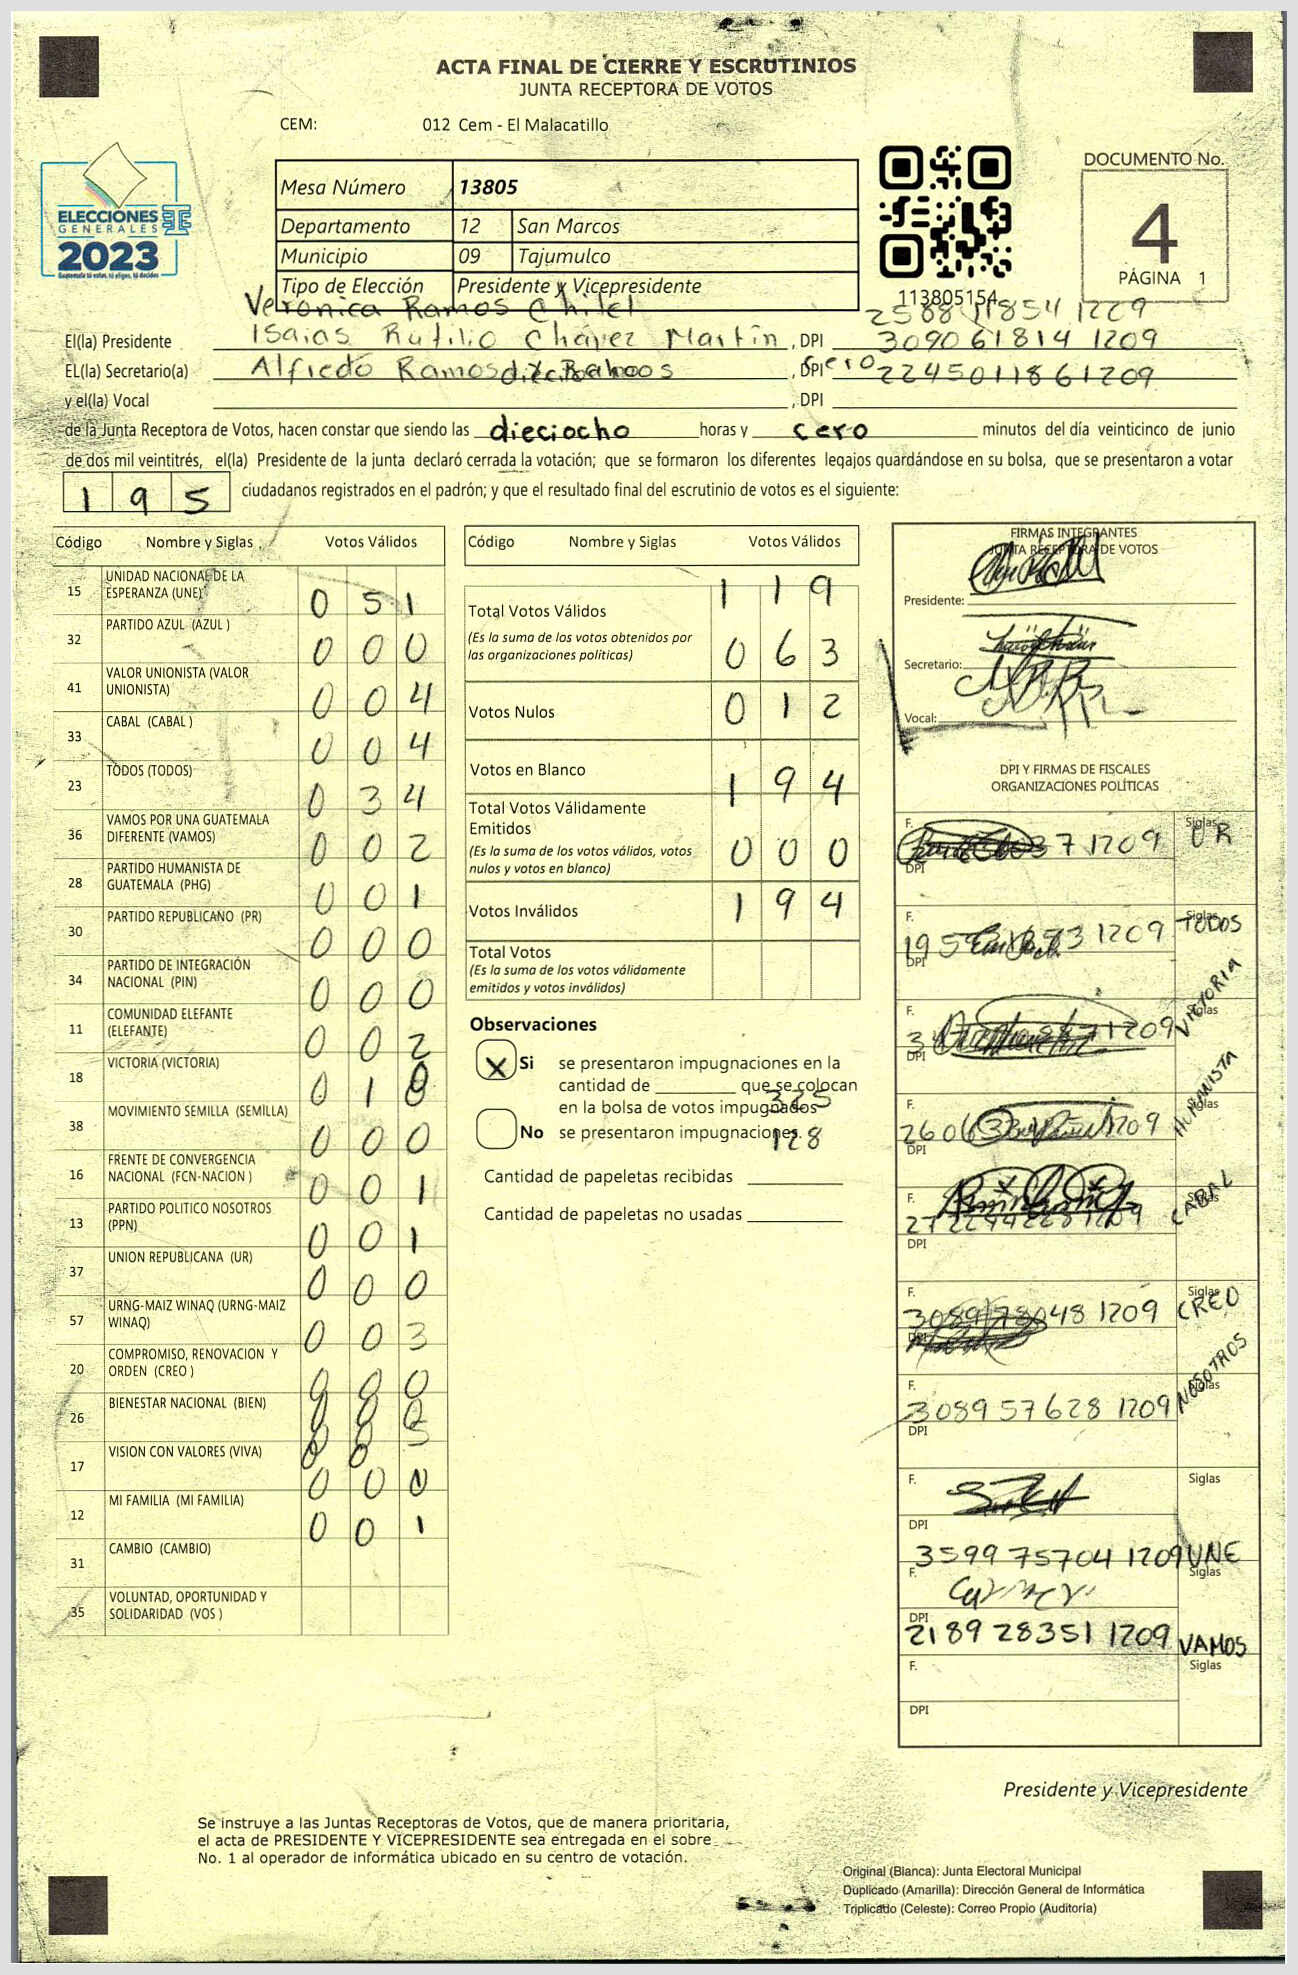 ACTA FINAL DE CIERRE Y ESCRUTINIOS
JUNTA RECEPTORA DE VOTOS
CEM: 012 Cem - El Malacatillo
ELECCIONES
GENERALES
2023
Guatemala tú votas, tú eliges, tú decides
Mesa Número 13805
Departamento 12 San Marcos
Municipio 09 Tajumulco
Tipo de Elección Presidente y Vicepresidente
113805154
DOCUMENTO No.
4
PÁGINA 1
Veronica Ramos Chilel 2588 11854 1209
El(la) Presidente Isaias Rutilio Chávez Martín, DPI 3090 61814 1209
EL(la) Secretario(a) Alfredo Ramos, DPI cero 2245011861209
y el(la) Vocal , DPI
de la Junta Receptora de Votos, hacen constar que siendo las dieciocho horas y cero minutos del día veinticinco de junio
de dos mil veintitrés, el(la) Presidente de la junta declaró cerrada la votación; que se formaron los diferentes legajos guardándose en su bolsa, que se presentaron a votar
195 ciudadanos registrados en el padrón; y que el resultado final del escrutinio de votos es el siguiente:
Código Nombre y Siglas Votos Válidos
15 UNIDAD NACIONAL DE LA
ESPERANZA (UNE) 0 5 1
32 PARTIDO AZUL (AZUL ) 0 0 0
41 VALOR UNIONISTA (VALOR
UNIONISTA) 0 0 4
33 CABAL (CABAL ) 0 0 4
23 TODOS (TODOS) 0 3 4
36 VAMOS POR UNA GUATEMALA
DIFERENTE (VAMOS) 0 0 2
28 PARTIDO HUMANISTA DE
GUATEMALA (PHG) 0 0 1
30 PARTIDO REPUBLICANO (PR) 0 0 0
34 PARTIDO DE INTEGRACIÓN
NACIONAL (PIN) 0 0 0
11 COMUNIDAD ELEFANTE
(ELEFANTE) 0 0 2
18 VICTORIA (VICTORIA) 0 1
38 MOVIMIENTO SEMILLA (SEMILLA) 0 0 0
16 FRENTE DE CONVERGENCIA
NACIONAL (FCN-NACION ) 0 0 1
13 PARTIDO POLITICO NOSOTROS
(PPN) 0 0 1
37 UNION REPUBLICANA (UR) 0 0 0
57 URNG-MAIZ WINAQ (URNG-MAIZ
WINAQ) 0 0 3
20 COMPROMISO, RENOVACION Y
ORDEN (CREO ) 0 0 0
26 BIENESTAR NACIONAL (BIEN)
17 VISION CON VALORES (VIVA) 0 0
12 MI FAMILIA (MI FAMILIA) 0 0 1
31 CAMBIO (CAMBIO)
35 VOLUNTAD, OPORTUNIDAD Y
SOLIDARIDAD (VOS )
Código Nombre y Siglas Votos Válidos
1 1 9
Total Votos Válidos
(Es la suma de los votos obtenidos por
las organizaciones políticas) 0 6 3
Votos Nulos 0 1 2
Votos en Blanco 1 9 4
Total Votos Válidamente
Emitidos
(Es la suma de los votos válidos, votos
nulos y votos en blanco) 0 0 0
Votos Inválidos 1 9 4
Total Votos
(Es la suma de los votos válidamente
emitidos y votos inválidos)
Observaciones
X Si se presentaron impugnaciones en la
cantidad de ________ que se colocan
en la bolsa de votos impugnados
325
No se presentaron impugnaciones
128
Cantidad de papeletas recibidas
Cantidad de papeletas no usadas
FIRMAS INTEGRANTES
JUNTA RECEPTORA DE VOTOS
Presidente:
Secretario:
Vocal:
DPI Y FIRMAS DE FISCALES
ORGANIZACIONES POLÍTICAS
F. Siglas
7 1209 UR
DPI
F. Siglas
1209 TODOS
DPI
F. Siglas
1209 VICTORIA
DPI
F. Siglas
1209 HUMANISTA
DPI
F. Siglas
1209 CABAL
DPI
F. Siglas
1209 CREO
DPI
F. Siglas
3089 57628 1209 NOSOTROS
DPI
F. Siglas
DPI
3599 75704 1209 UNE
F. Siglas
DPI
2189 28351 1209 VAMOS
F. Siglas
DPI
Presidente y Vicepresidente
Se instruye a las Juntas Receptoras de Votos, que de manera prioritaria,
el acta de PRESIDENTE Y VICEPRESIDENTE sea entregada en el sobre
No. 1 al operador de informática ubicado en su centro de votación.
Original (Blanca): Junta Electoral Municipal
Duplicado (Amarilla): Dirección General de Informática
Triplicado (Celeste): Correo Propio (Auditoría)